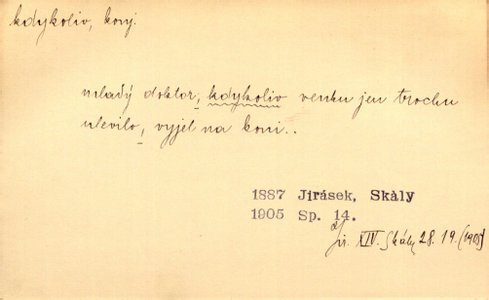 kdykoliv, konj.
mladý doktor, kdykoliv venku jen trochu
ulevilo, vyjel na koni..
1887 Jirásek, Skály
1905 Sp. 14.
Jir. XIV. Skály 28.19. (1905)